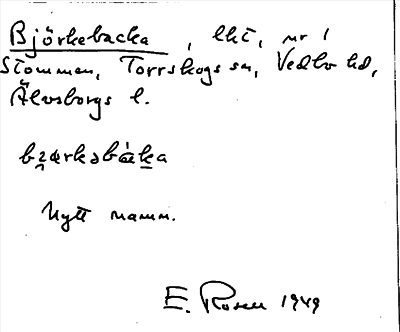 Björkebacka, lht, nr 1
Stommen, Torrskogs sn, Vedbo hd,
Älvsborgs l.
Nytt namn.
E. Rosen 1949